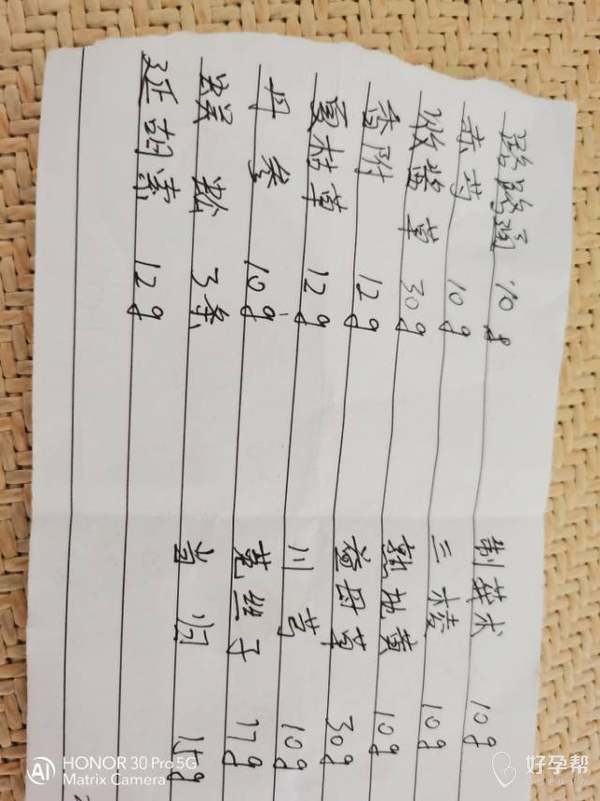 路路通 10g 制莪术 10g
赤芍 10g 三棱 10g
败酱草 30g 熟地黄 10g
香附 12g 益母草 30g
夏枯草 12g 川芎 10g
丹参 10g 菟丝子 17g
蜈蚣 3条 当归 15g
延胡索 12g
HONOR 30 Pro 5G
Matrix Camera
好孕帮